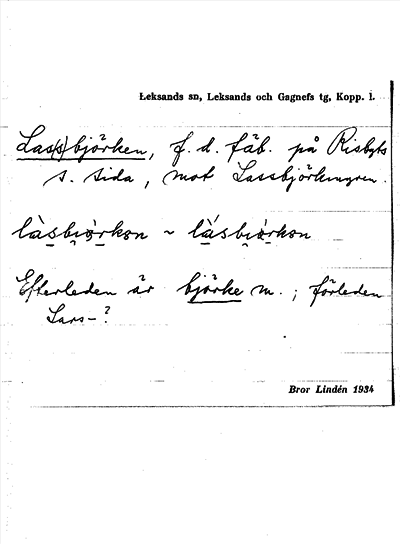 Leksands sn, Leksands och Gagnefs tg, Kopp. l.
Las(s)björken, f. d. fäb. på Risbyks
s. sida, mot Lassbjörkmyren.
làsbjörkon ~ lásbjörkon
Efterleden är björke m.; förleden
Lars-?
Bror Lindén 1934